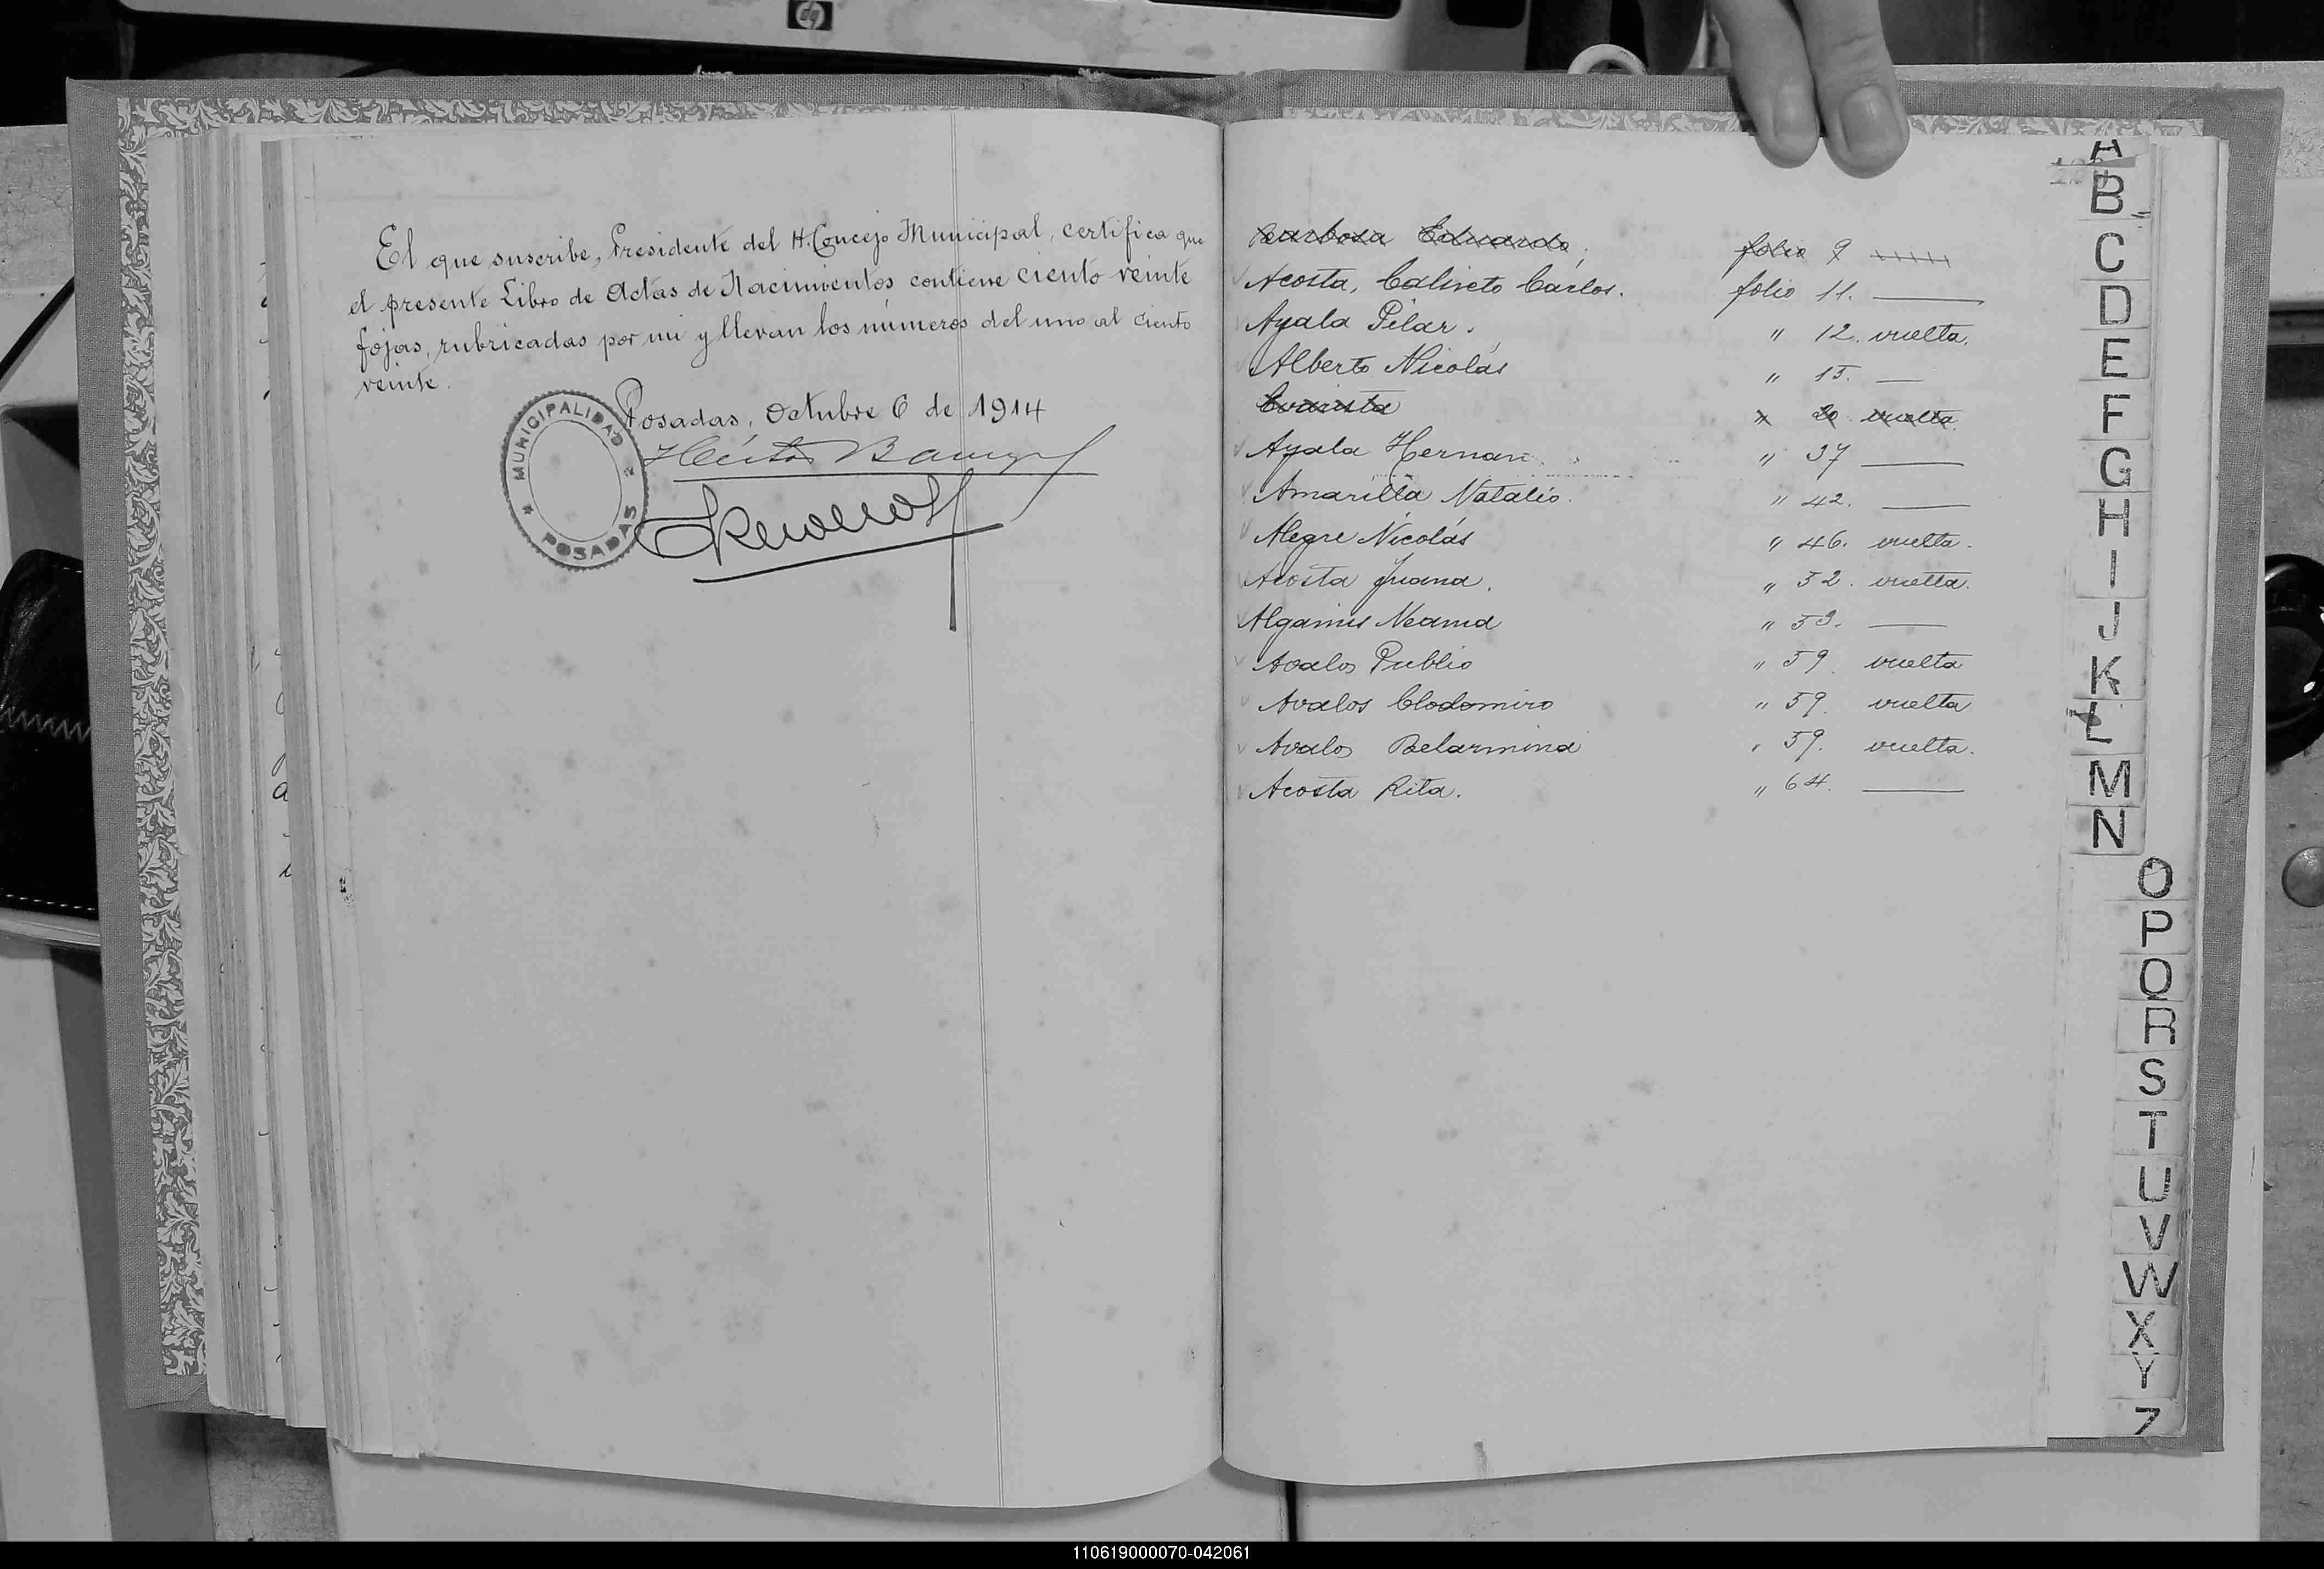 hp
El que suscribe, Presidente del H. Concejo Municipal, certifica que
el presente Libro de Actas de Nacimientos contiene ciento veinte
fojas, rubricadas por mi y llevan los números del uno al ciento
veinte.
Posadas, Octubre 6 de 1914
MUNICIPALIDAD
POSADAS
Héctor
Barbosa Eduardo, folio 9
Acosta, Calisto Cárlos. folio 11.
Ayala Pilar. " 12. vuelta.
Alberto Nicolás " 15.
20 vuelta.
Ayala Hernan " 37
Amarilla Natalio. " 42.
Alegre Nicolás " 46. vuelta.
Acosta Juana. " 52. vuelta.
Neama " 53.
Avalos Publio " 59. vuelta
Avalos Clodomiro " 59. vuelta
Avalos Belarmina " 59. vuelta.
Acosta Rita. " 64.
A
B
C
D
E
F
G
H
I
J
K
L
M
N
O
P
Q
R
S
T
U
V
W
X
Y
Z
110619000070-042061